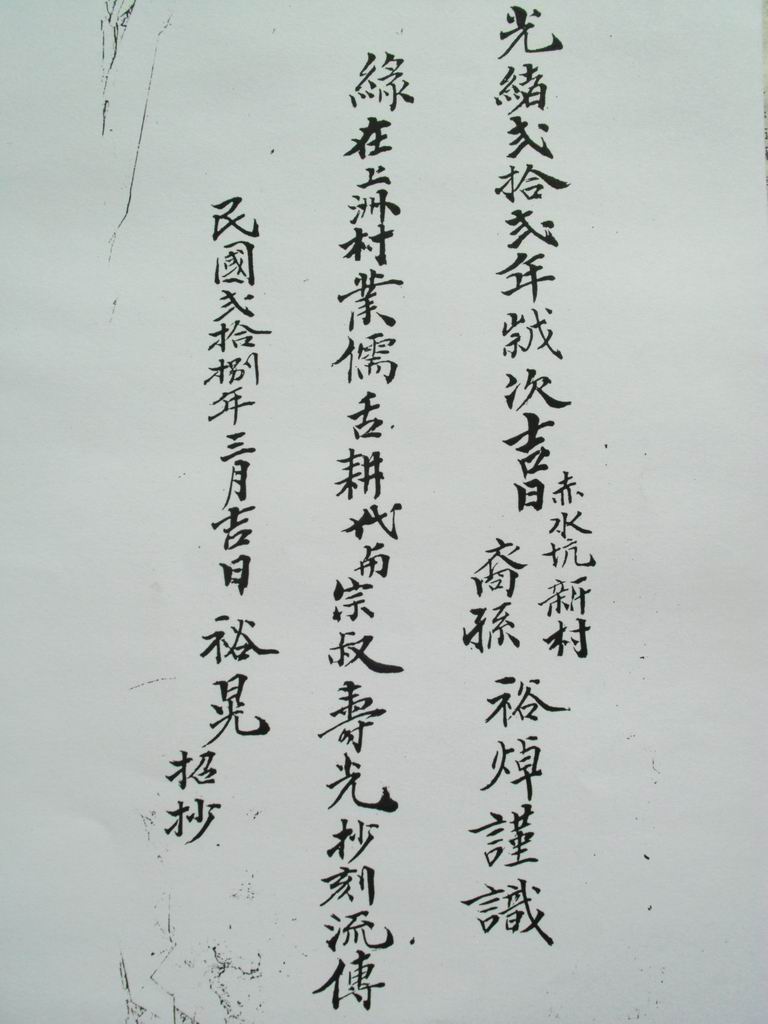 光緒弐拾弐年歲次吉日
赤水坑新村
裔孫裕焯謹識
緣在上洲村業儒舌耕代與宗叔壽光抄刻流傳
民國弍拾捌年三月吉日裕晃
招抄